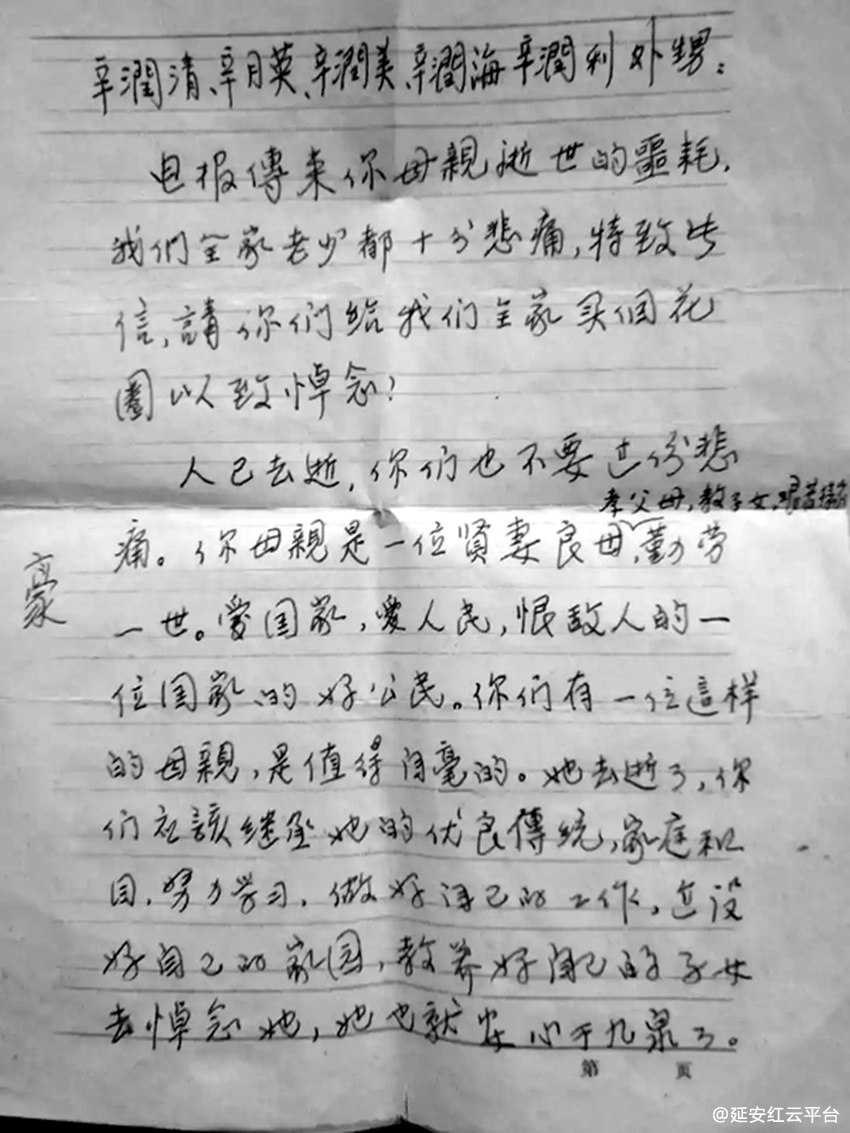 辛潤清、辛月英、辛潤美、辛潤海辛潤利外甥：
电报傳来你母親逝世的噩耗，
我們全家老少都十分悲痛，特致此
信，請你們给我们全家买個花
圈以致悼念！
人已去逝，你们也不要过份悲
孝父母，教子女，艰苦
痛。你母親是一位贤妻良母，勤劳
一世。愛国家，愛人民，恨敌人的一
豪
位国家的好公民。你們有一位這样
的母親，是值得自毫的。她去逝了，你
们应該继承她的优良傳统，家庭和
目，努力学习，做好自己的工作，建设
好自己的家园，教养好自己的子女
去悼念她，她也就安心于九泉了。
第 页
@延安红云平台